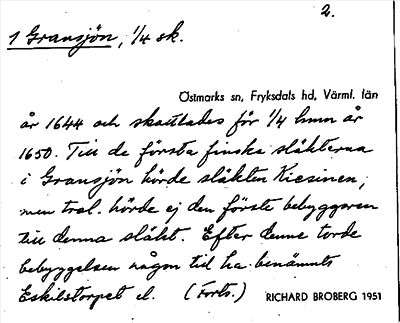 2.
1 Gransjön, 1/4 sk.
Östmarks sn, Fryksdals hd, Värml. län
år 1644 och skattlades för 1/4 hmn år
1650. Till de första finska släkterna
i Gransjön hörde släkten Kiesinen,
men trol. hörde ej den förste bebyggaren
till denna släkt. Efter denne torde
bebyggelsen någon tid ha benämnts
Eskilstorpet el. (Forts.) RICHARD BROBERG 1951